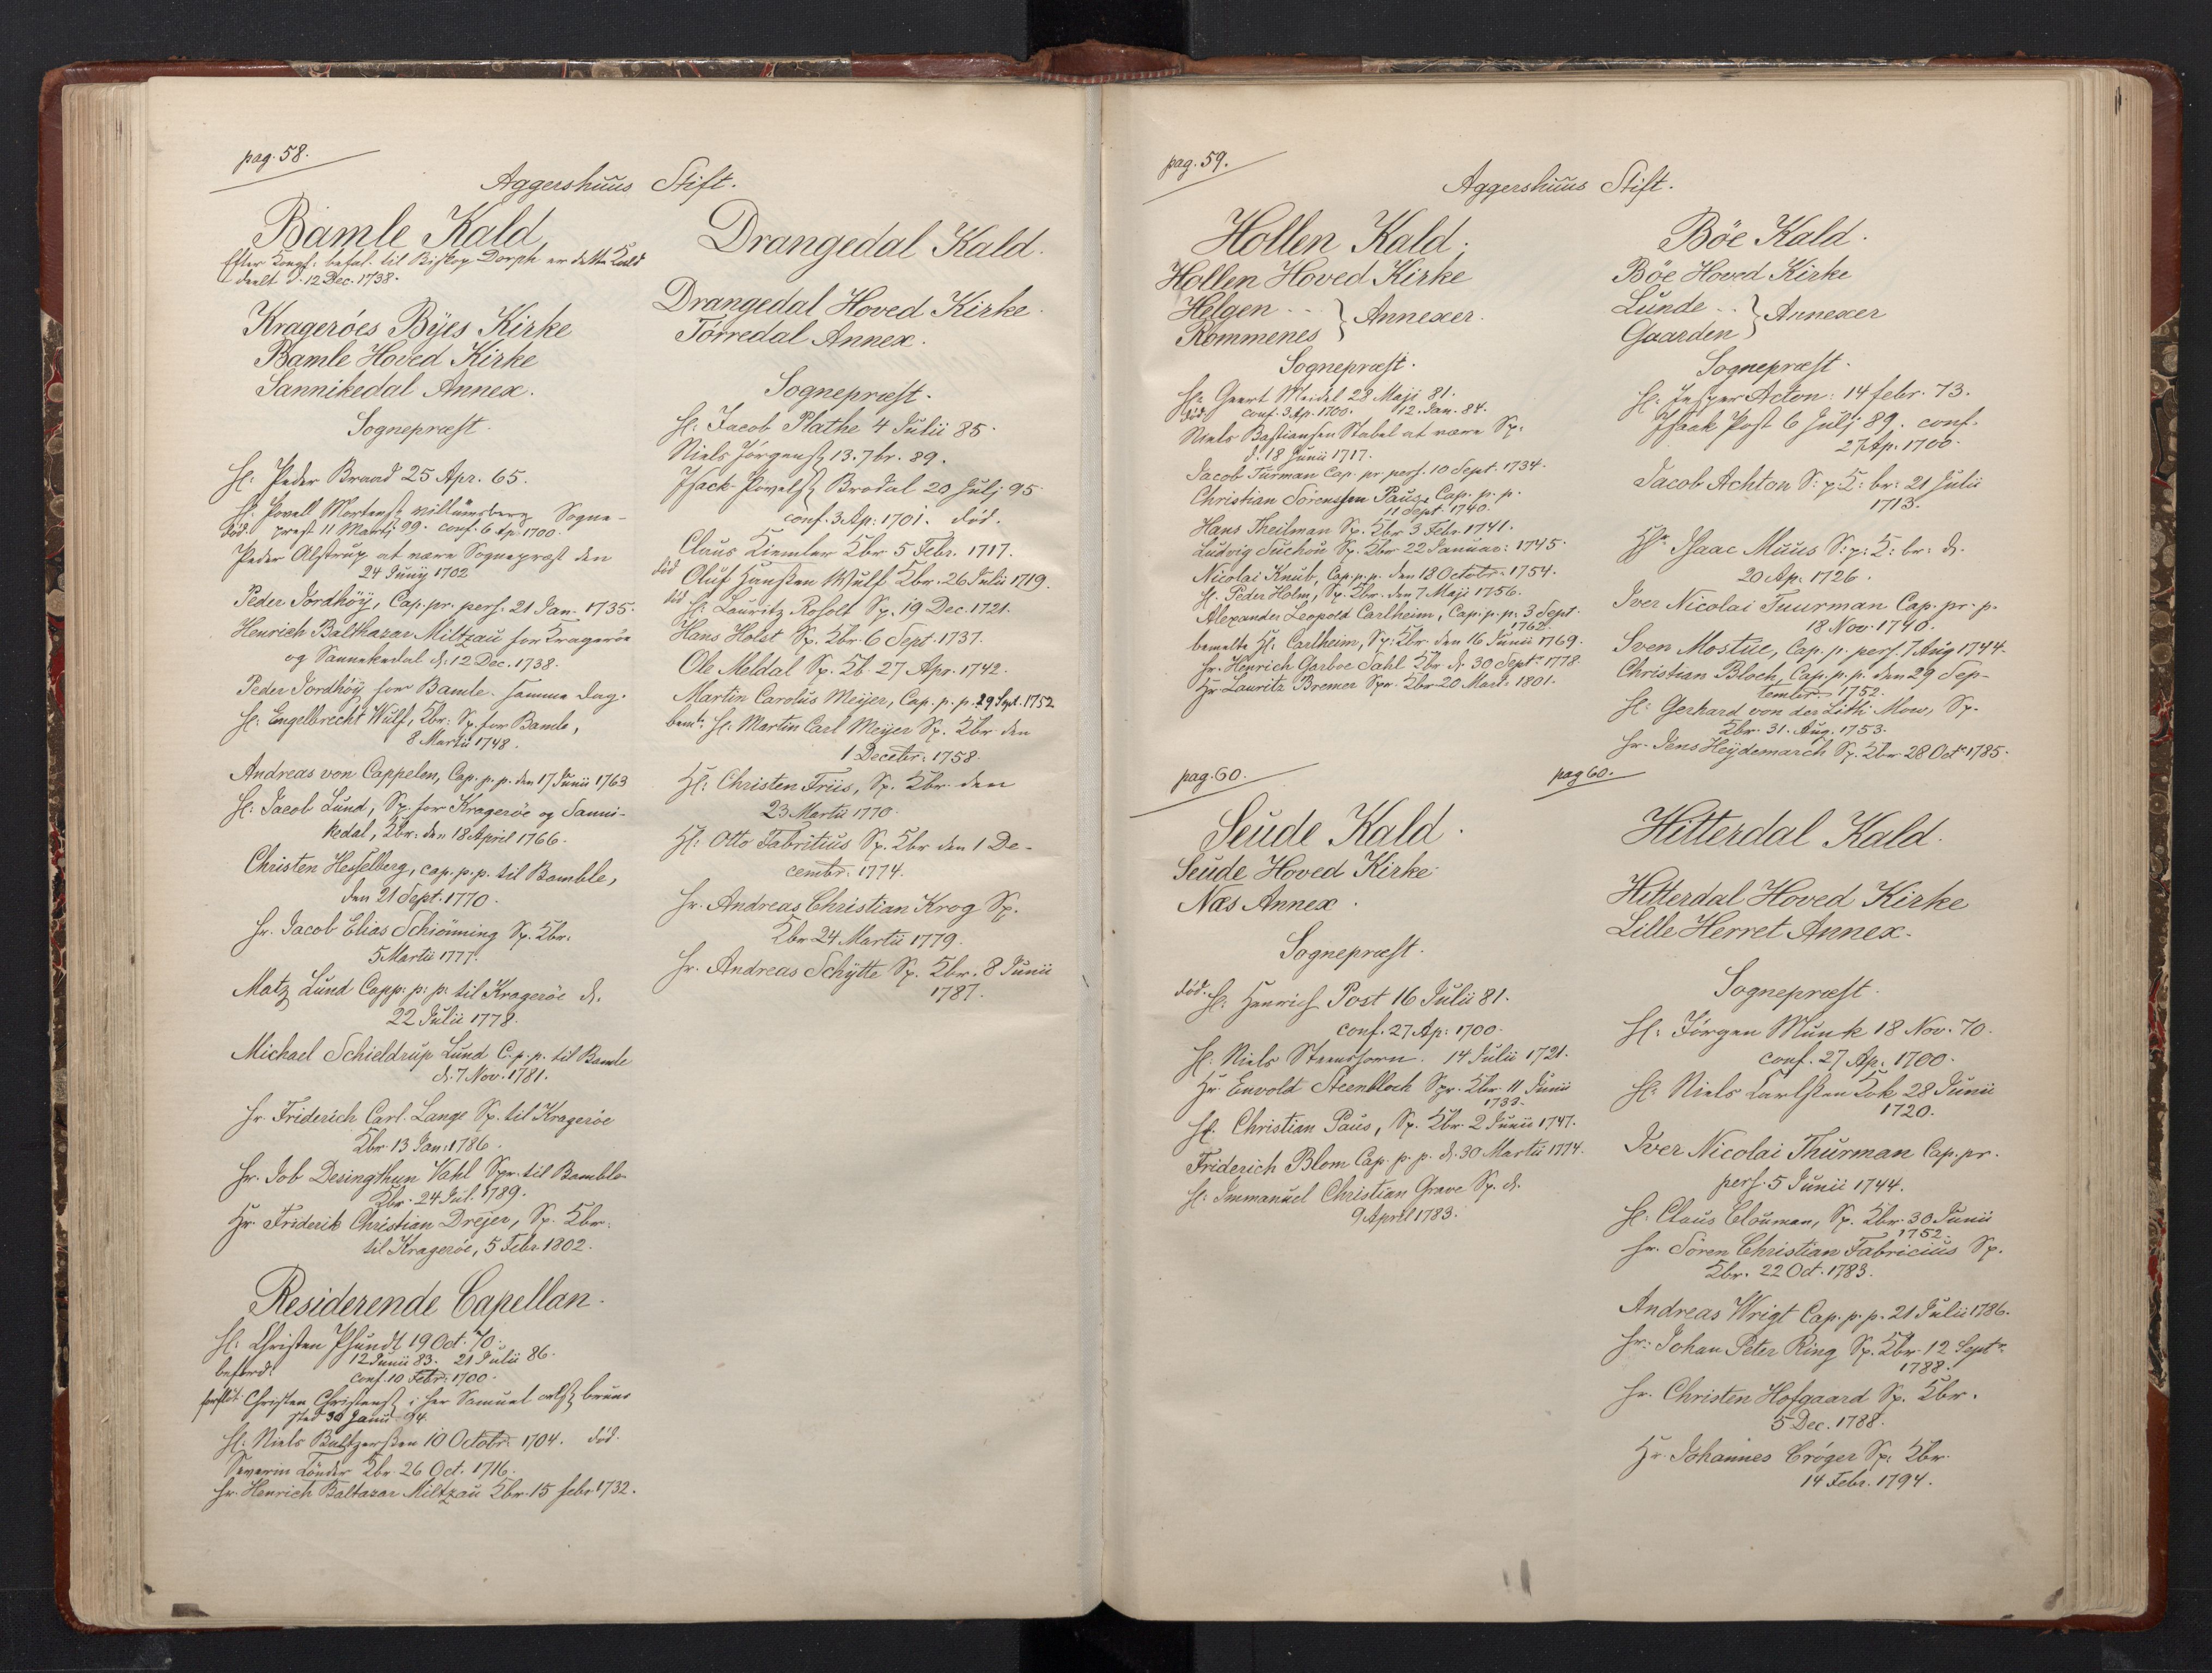 pag. 58.
Aggershuus Stift.
Bamle Kald
Efter Kongl. befal. til Biskop Dorph er dette Kald
deelt d. 12 Dec. 1738.
Kragerøes Byes Kirke
Bamle Hoved Kirke
Sannikedal Annex.
Sognepræst.
Hr. Peder Braad 25 Apr. 65.
Hr. Povell Mortensß Sogne-
død. prest 11 Martij 99. conf. 6 Ap. 1700.
Peder Alstrup at være Sognepræst den
24 Junij 1702
Peder Jordhøy, Cap. pr. pers. 21 Jan. 1735.
Henrich Balthazar Miltzau for Kragerøe
og Sannekedal d. 12 Dec. 1738.
Peder Jordhøy for Bamle. samme dag.
Hr. Engelbrecht Wulf, Kbr. Sp. for Bamle,
8 Martii 1748.
Andreas von Cappelen, Cap. p. p. den 17 Junii 1763
Hr. Jacob Lund, Sp. for Kragerøe og Sanni-
kedal, Kbr. den 18 April 1766.
Christen Hesselberg, cap. p. p. til Bamble,
den 21 Sept. 1770.
Hr. Jacob Elias Schiønning Sp. Kbr.
5 Martii 1777.
Matz Lund Capp: p: p: til Kragerøe d.
22 Julii 1778.
Michael Schieldrup Lund C. p. p. til Bamle
d. 7 Nov. 1781.
Hr. Friderich Carl Lange Sp. til Kragerøe
Kbr. 13 Jan: 1786.
Hr. Job Desingthun Vahl Spr. til Bamble
Kbr. 24 Jul. 1789.
Hr. Friderik Christian Drejer, Sp. Kbr.
til Kragerøe, 5 Febr. 1802.
Residerende Capellan.
Hr. Christen Pfundt 19 Oct. 70.
12 Junii 83. 21 Julii 86.
beford. conf. 10 Febr. 1700.
Christen Christensß i her Samuel
sted 30 Junii 94.
Hr. Niels Baltzersen 10 Octobr. 1704. død.
Severin Kbr. 26 Oct. 1716.
Hr. Henrich Baltazar Miltzau Kbr. 15 febr. 1732.
Drangedal Kald.
Drangedal Hoved Kirke.
Tørredal Annex.
Sognepræst.
Hr. Jacob Plathe 4 Julii 85.
Niels Jørgensß 13. 7br. 89.
Isack Povelsß Brodal 20 Julj 95.
conf. 3 Ap: 1701. død.
Claus Kiemler Kbr 5 Febr. 1717.
død Oluf Hansen Wulf Kbr. 26 Julii 1719.
død Hr. Lauritz Rosolt Sp. 19 Dec. 1721.
Hans Holst Sp. Kbr. 6 Sept. 1737.
Ole Meldal Sp. Kb. 27 Apr. 1742.
Martin Carolus Meijer, Cap. p. p. 29 Sept. 1752
bemte. Hr. Martin Carl Meijer Sp. Kbr. den
1 Decebr. 1758.
Hr: Christen Friis, Sp. Kbr. den
23 Martii 1770.
Hr: Otto Fabritius Sp. Kbr den 1 De-
cembr: 1774.
Hr. Andreas Christian Krog Sp.
Kbr 24 Martii 1779.
Hr. Andreas Schytte Sp. Kbr. 8 Junii
1787.
pag. 59.
Aggershuus Stift.
Hollen Kald.
Hollen Hoved Kirke
Helgen .. } Annexer.
Rommenes
Sognepræst.
Hr. Geert Meidel 28 Maji 81.
død. conf. 3 Ap. 1700. 12. Jan. 84.
Niels Bastiansen Stabel at være Sp:
d. 18 Junii 1717.
Jacob Turman Cap. pr. pers. 10 Sept. 1734.
Christian Sørenssen Pauz, Cap. p. p.
11 Sept. 1740.
Hans Theilman Sp. Kbr 3 Febr. 1741.
Ludvig Suchou Sp. Kbr 22 Januar: 1745.
Nicolai Knub, Cap. p. p. den 18 Octobr. 1754.
Hr. Peder Holm, Sp. Kbr. den 7 Maji 1756.
Alexander Leopold Carlheim, Cap. p. p. 3 Sept.
1762.
bemelte Hr. Carlheim, Sp: Kbr. den 16 Junii 1769.
Hr. Henrich Garboe Dahl Kbr. d. 30 Sept. 1778.
Hr Lauritz Bremer Spr. Kbr 20 Mart. 1801.
Bøe Kald.
Bøe Hoved Kirke
Lunde .. } Annexer
Gaarden
Sognepræst.
Hr. Jesper Acton: 14 febr. 73.
Isaak Post 6 Julj 89. conf.
27 Ap. 1700.
Jacob Achton S: p: K: br: 21 Julii
1713.
Hr. Isaac Muus S: p: K: br: d.
20 Ap. 1726.
Iver Nicolai Tuurman Cap. pr. p.
18 Nov. 1740.
Sven Mostue, Cap. p. pers. 7 Aug 1744.
Christian Bloch, Cap. p. p. den 29 Sep-
tember 1752.
Hr: Gerhard von der Lith Mow, Sp.
Kbr. 31. Aug. 1753.
Hr. Jens Heijdemarch Sp. Kbr 28 Oct. 1785.
pag. 60.
Seude Kald.
Seude Hoved Kirke
Næs Annex.
Sognepræst.
død. Hr. Henrich Post 16 Julii 81.
conf. 27 Ap: 1700.
Hr. Niels Steenstorn. 14 Julii 1721.
Hr Envold Steenbloch Spr. Kbr 11 Junii
1733.
Hr. Christian Paus, Sp. Kbr. 2 Junii 1747.
Friderich Blom Cap. p. p. d. 30 Martii 1774.
Hr. Immanuel Christian Grave Sp. d.
9 April 1783.
pag 60.
Hitterdal Kald.
Hitterdal Hoved Kirke
Lille Herret Annex.
Sognepræst.
Hr: Jørgen Munk 18 Nov. 70.
conf. 27 Ap: 1700.
Hr: Niels Carlsen Kok 28 Junii
1720.
Iver Nicolai Thurman Cap. pr.
pers. 5 Junii 1744.
Hr: Claus Clouman, Sp. Kbr. 30 Junii
1752.
Hr. Søren Christian Fabricius Sp.
Kbr. 22 Oct. 1783.
Andreas Wrigt Cap. p. p. 21 Julii 1786.
Hr: Johan Peter Ring Sp. Kbr. 12 Septr.
1788.
Hr. Christen Hofgaard Sp. Kbr.
5 Dec. 1788.
Hr. Johannes Crøger Sp: Kbr.
14 Febr. 1794.